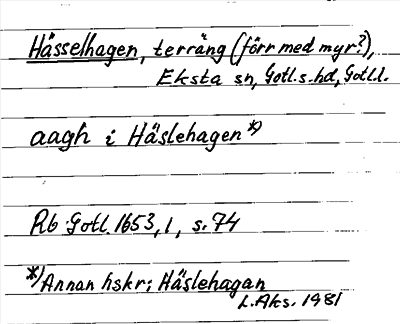 Hässelhagen, terräng (förr med myr?),
Eksta sn, Gotl.s.hd, Gotl.l.
aagh i Häslehagen *)
Rb Gotl. 1653, 1, s. 74
*) Annan hskr: Häslehagan
L.Aks. 1981